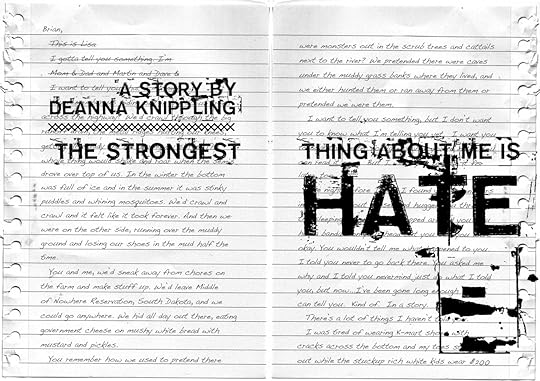 Brian,
This is Lisa
I gotta tell you something. I'm
Mom & Dad and Martin and Dave &
I want to tell you
A STORY BY
DEANNA KNIPPLING
across the highway? We'd crawl through the big
THE STRONGEST
whole thing would shake and roar when the semis
drove over top of us. In the winter the bottom
was full of ice and in the summer it was stinky
puddles and whining mosquitoes. We'd crawl and
crawl and it felt like it took forever. And then we
were on the other side, running over the muddy
ground and losing our shoes in the mud half the
time.
You and me, we'd sneak away from chores on
the farm and make stuff up. We'd leave Middle
of Nowhere Reservation, South Dakota, and we
could go anywhere. We hid all day out there, eating
government cheese on mushy white bread with
mustard and pickles.
You remember how we used to pretend there
were monsters out in the scrub trees and cattails
next to the river? We pretended there were caves
under the muddy grass banks where they lived, and
we either hunted them or ran away from them or
pretended we were them.
I want to tell you something, but I don't want
you to know what I'm telling you yet. I want you
THING ABOUT ME IS
HATE
okay. You wouldn't tell me what happened to you.
I told you never to go back there. You asked me
why and I told you nevermind just do what I told
you but now...I've been gone long enough
can tell you. Kind of. In a story.
There's a lot of things I haven't
I was tired of wearing K-mart shoes with
cracks across the bottom and my toes
out while the stuckup rich white kids wear $200